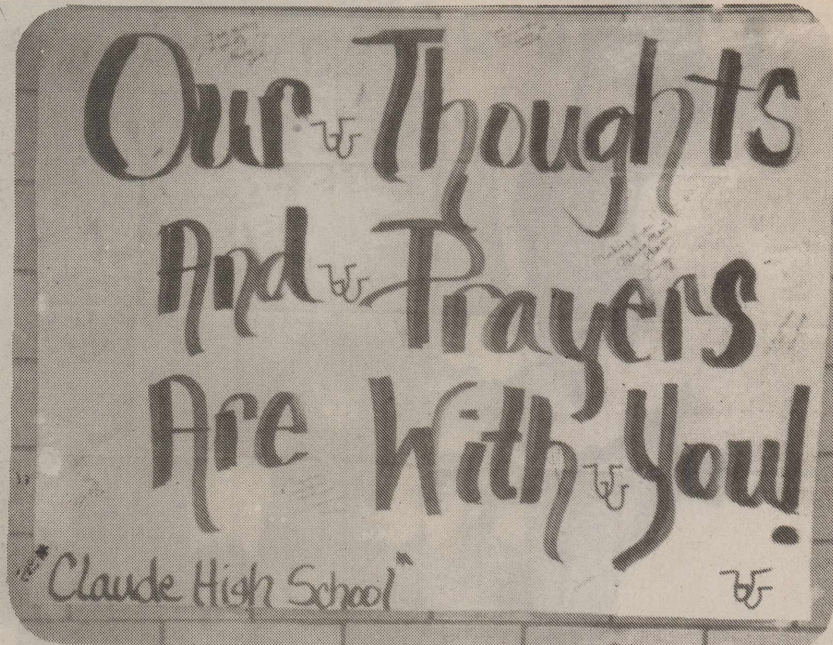 Our Thoughts
And Prayers
Are With You!
"Claude High School"